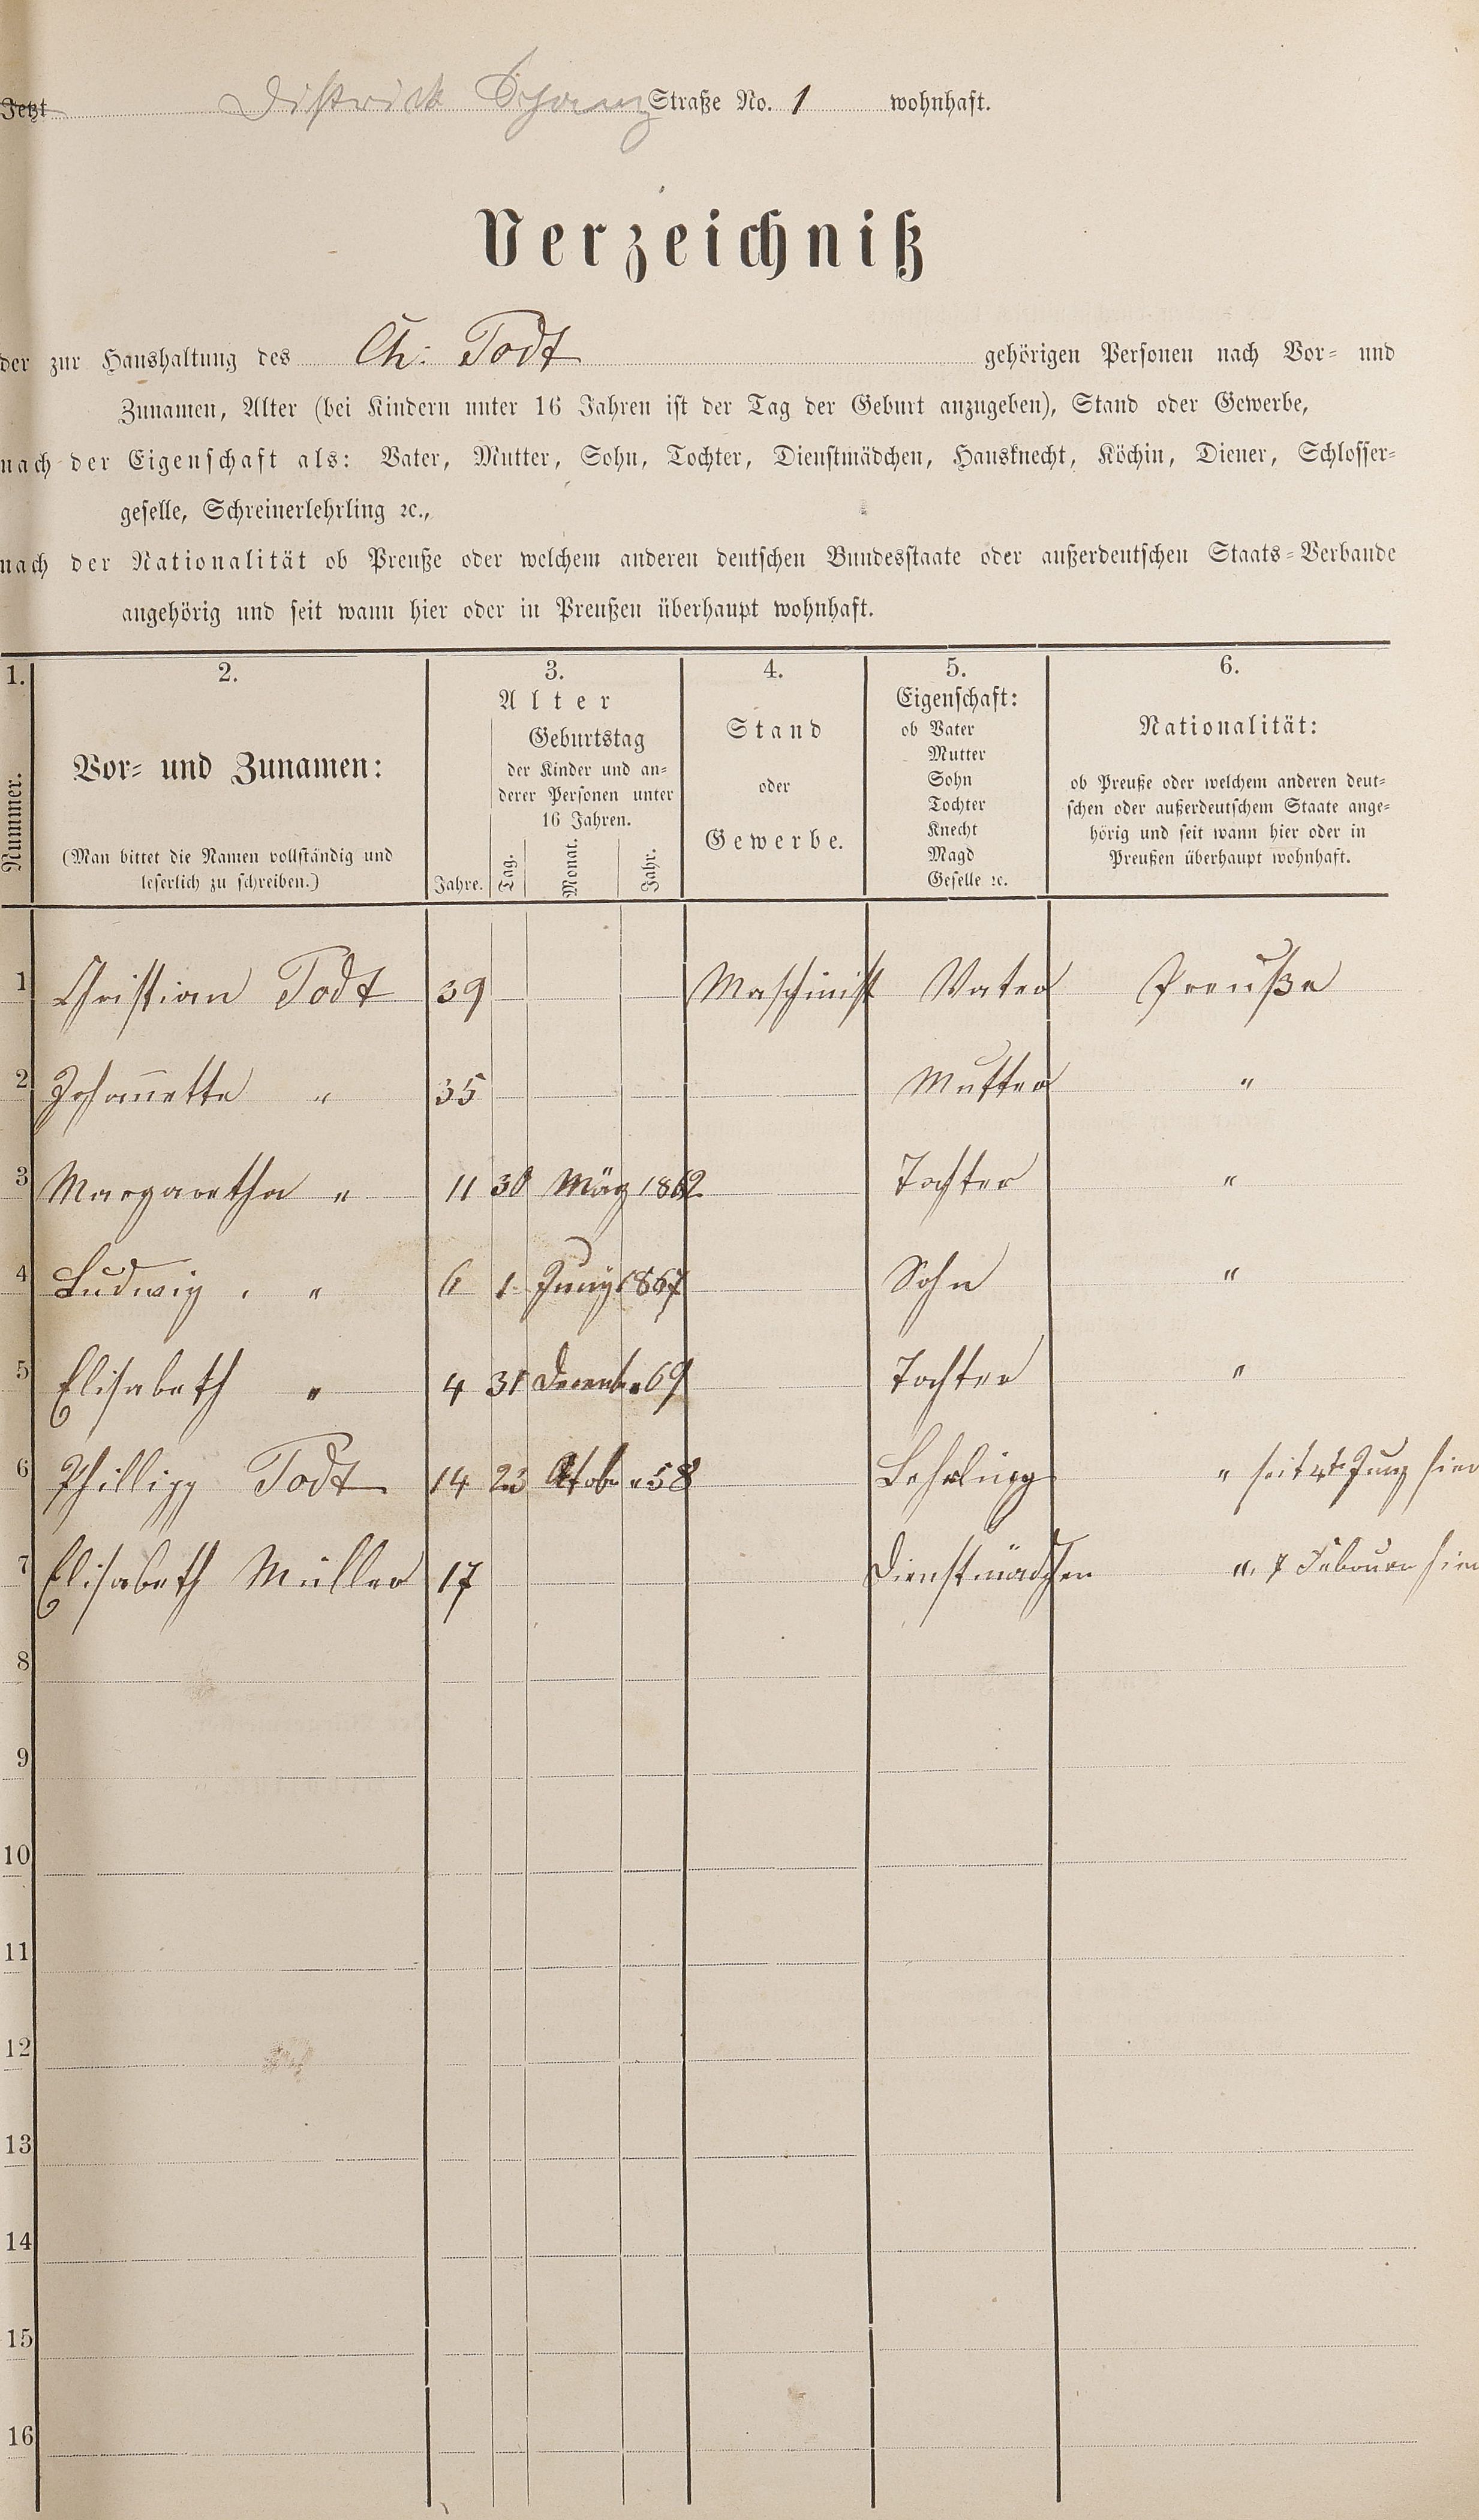 Jetzt District Straße No. 1 wohnhaft.
Verzeichniß
der zur Haushaltung des Ch: Todt gehörigen Personen nach Vor- und
Zunamen, Alter (bei Kindern unter 16 Jahren ist der Tag der Geburt anzugeben), Stand oder Gewerbe,
nach der Eigenschaft als: Vater, Mutter, Sohn, Tochter, Dienstmädchen, Hausknecht, Köchin, Diener, Schlosser-
geselle, Schreinerlehrling ꝛc.,
nach der Nationalität ob Preuße oder welchem anderen deutschen Bundesstaate oder außerdeutschen Staats-Verbande
angehörig und seit wann hier oder in Preußen überhaupt wohnhaft.
1. 2. 3. 4. 5. 6.
Nummer.
Vor- und Zunamen:
(Man bittet die Namen vollständig und
leserlich zu schreiben.)
Alter
Geburtstag
der Kinder und an-
derer Personen unter
16 Jahren.
Jahre. Tag. Monat. Jahr.
Stand
oder
Gewerbe.
Eigenschaft:
ob Vater
Mutter
Sohn
Tochter
Knecht
Magd
Geselle ꝛc.
Nationalität:
ob Preuße oder welchem anderen deut-
schen oder außerdeutschem Staate ange-
hörig und seit wann hier oder in
Preußen überhaupt wohnhaft.
1 Christian Todt 39 Maschinist Vater Preuße
2 Johannette " 35 Mutter "
3 Margaretha " 11 30 März 1862 Tochter "
4 Ludwig " 6 1 Juny 1867 Sohn "
5 Elisabeth " 4 31 Decemb " 69 Tochter "
6 Phillipp Todt 14 23 Oktob " 58 Lehrling " seit Juny hier
7 Elisabeth Müller 17 Dienstmädchen " 7 Februar hier
8
9
10
11
12
13
14
15
16